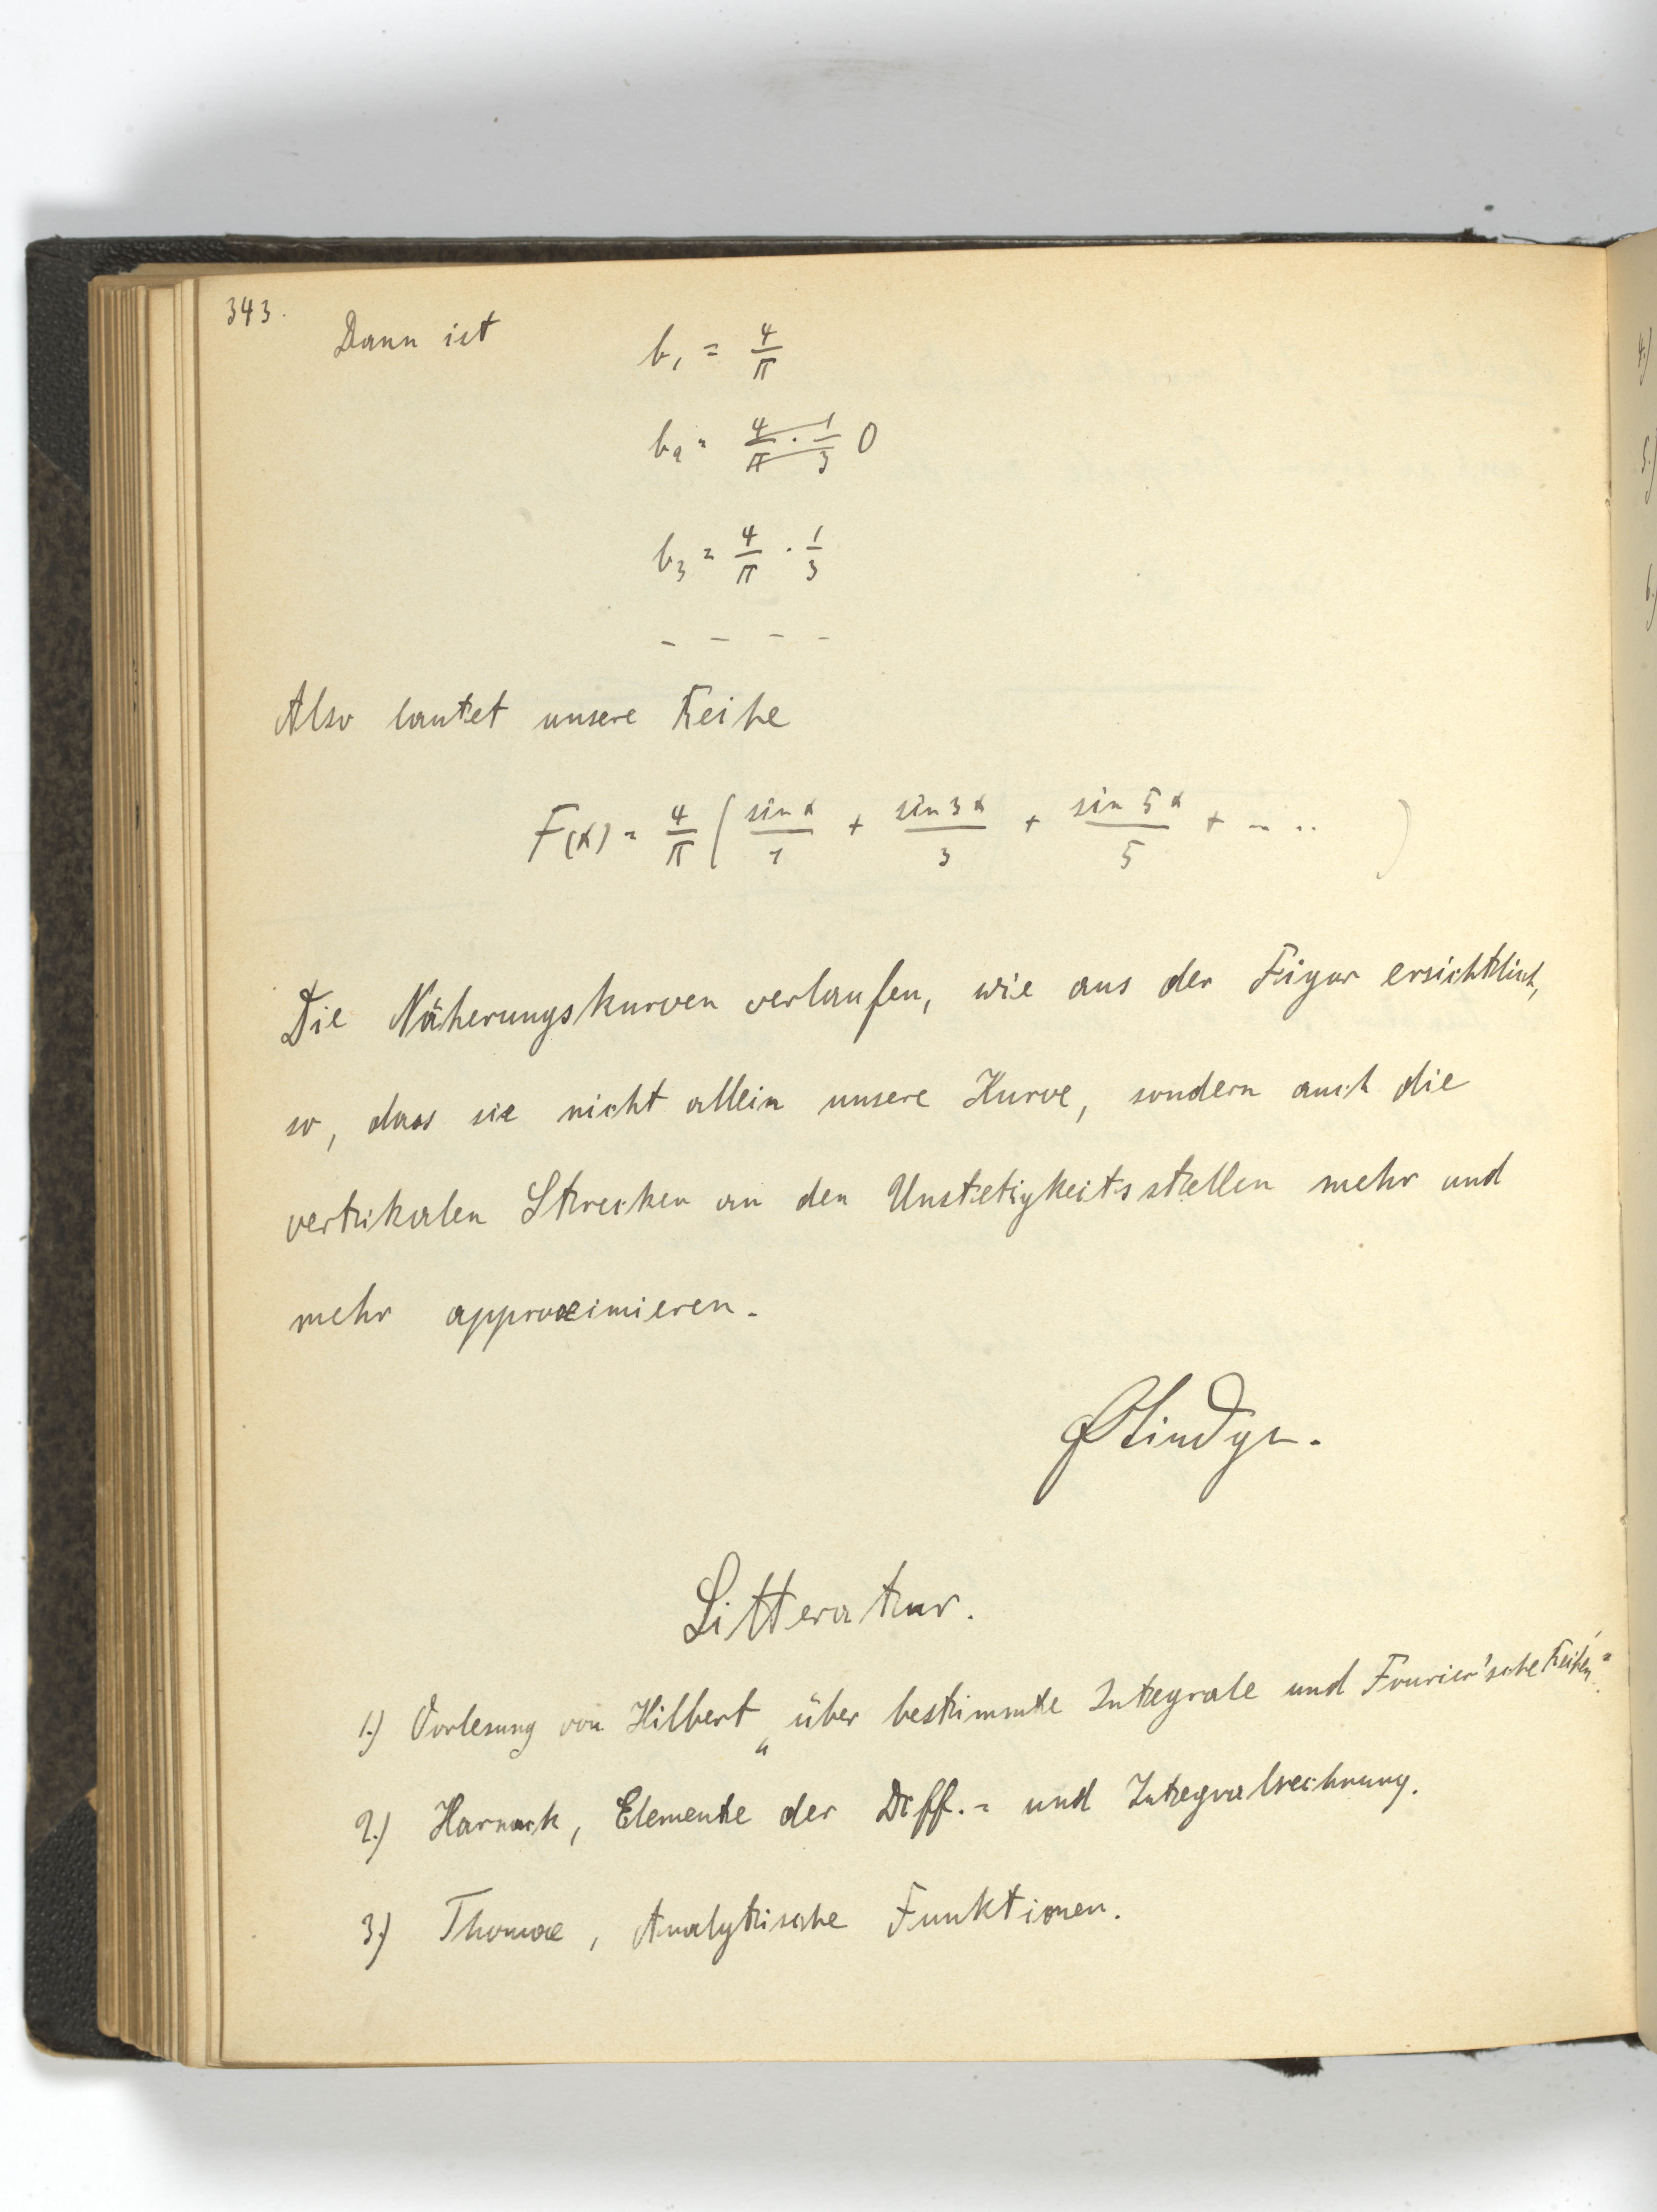 343.
Dann ist b₁ = 4/π
b₂ = 4/π · 1/3 0
b₃ = 4/π · 1/3
- - - -
Also lautet unsere Reihe
F(x) = 4/π ( sin x/1 + sin 3x/3 + sin 5x/5 + - .. )
Die Näherungskurven verlaufen, wie aus der Figur ersichtlich,
so, dass sie nicht allein unsere Kurve, sondern auch die
vertikalen Strecken an den Unstetigkeitsstellen mehr und
mehr approximieren.
Litteratur.
1.) Vorlesung von Hilbert „über bestimmte Integrale und Fourier'sche Reihen“.
2.) Harnack, Elemente der Diff.= und Integralrechnung.
3.) Thomae, Analytische Funktionen.
4.)
5.)
6.)